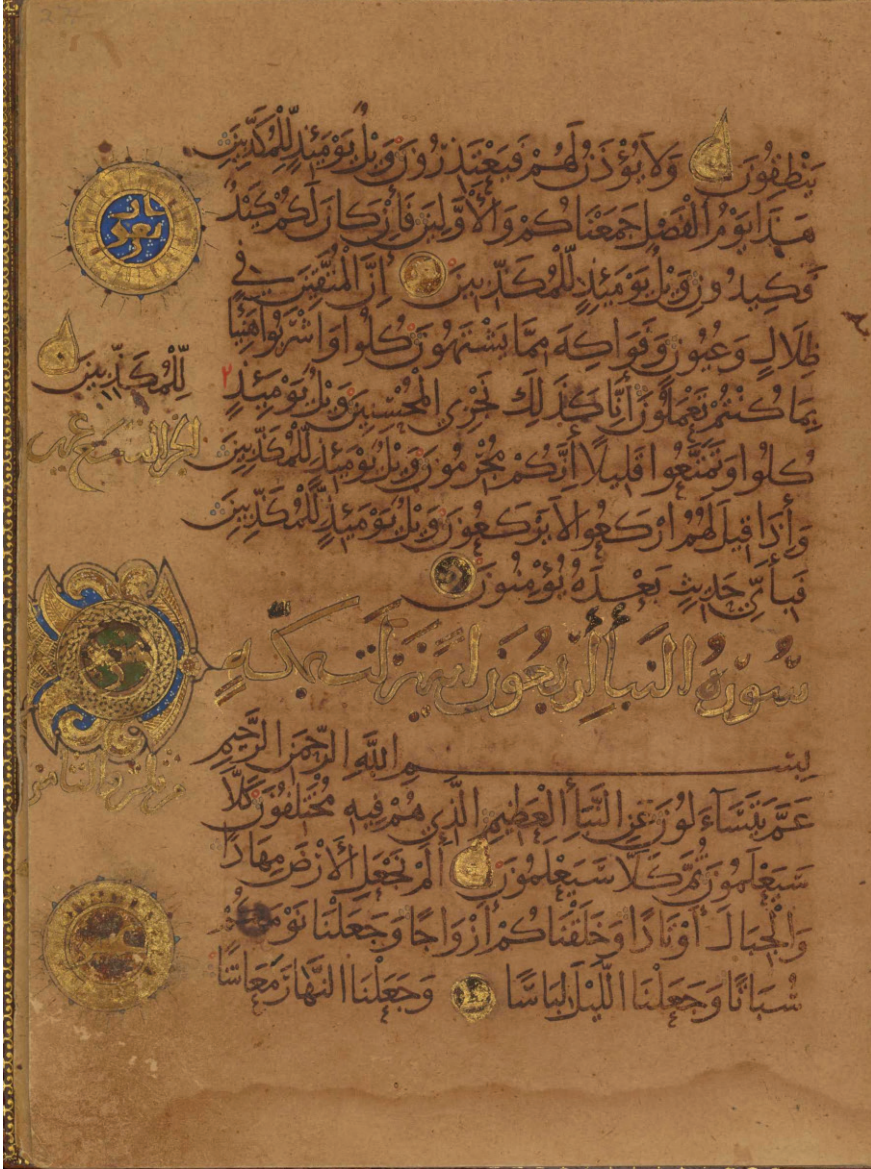 يَنْطِقُونَ وَلَا يُؤْذَنُ لَهُمْ فَيَعْتَذِرُونَ وَيْلٌ يَوْمَئِذٍ لِلْمُكَذِّبِينَ
هَذَا يَوْمُ الْفَصْلِ جَمَعْنَاكُمْ وَالْأَوَّلِينَ فَإِنْ كَانَ لَكُمْ كَيْدٌ
فَكِيدُونِ وَيْلٌ يَوْمَئِذٍ لِلْمُكَذِّبِينَ إِنَّ الْمُتَّقِينَ فِي
ظِلَالٍ وَعُيُونٍ وَفَوَاكِهَ مِمَّا يَشْتَهُونَ كُلُوا وَاشْرَبُوا هَنِيئًا
بِمَا كُنْتُمْ تَعْمَلُونَ إِنَّا كَذَلِكَ نَجْزِي الْمُحْسِنِينَ وَيْلٌ يَوْمَئِذٍ ٢
لِلْمُكَذِّبِينَ
كُلُوا وَتَمَتَّعُوا قَلِيلًا إِنَّكُمْ مُجْرِمُونَ وَيْلٌ يَوْمَئِذٍ لِلْمُكَذِّبِينَ
وَإِذَا قِيلَ لَهُمُ ارْكَعُوا لَا يَرْكَعُونَ وَيْلٌ يَوْمَئِذٍ لِلْمُكَذِّبِينَ
فَبِأَيِّ حَدِيثٍ بَعْدَهُ يُؤْمِنُونَ
سُورَةُ النَّبَأ أَرْبَعُونَ آيَة نَزَلَت بِمَكَّة
بِسْمِ اللَّهِ الرَّحْمَنِ الرَّحِيمِ
عَمَّ يَتَسَاءَلُونَ عَنِ النَّبَأِ الْعَظِيمِ الَّذِي هُمْ فِيهِ مُخْتَلِفُونَ كَلَّا
سَيَعْلَمُونَ ثُمَّ كَلَّا سَيَعْلَمُونَ أَلَمْ نَجْعَلِ الْأَرْضَ مِهَادًا
وَالْجِبَالَ أَوْتَادًا وَخَلَقْنَاكُمْ أَزْوَاجًا وَجَعَلْنَا نَوْمَكُمْ
سُبَاتًا وَجَعَلْنَا اللَّيْلَ لِبَاسًا وَجَعَلْنَا النَّهَارَ مَعَاشًا